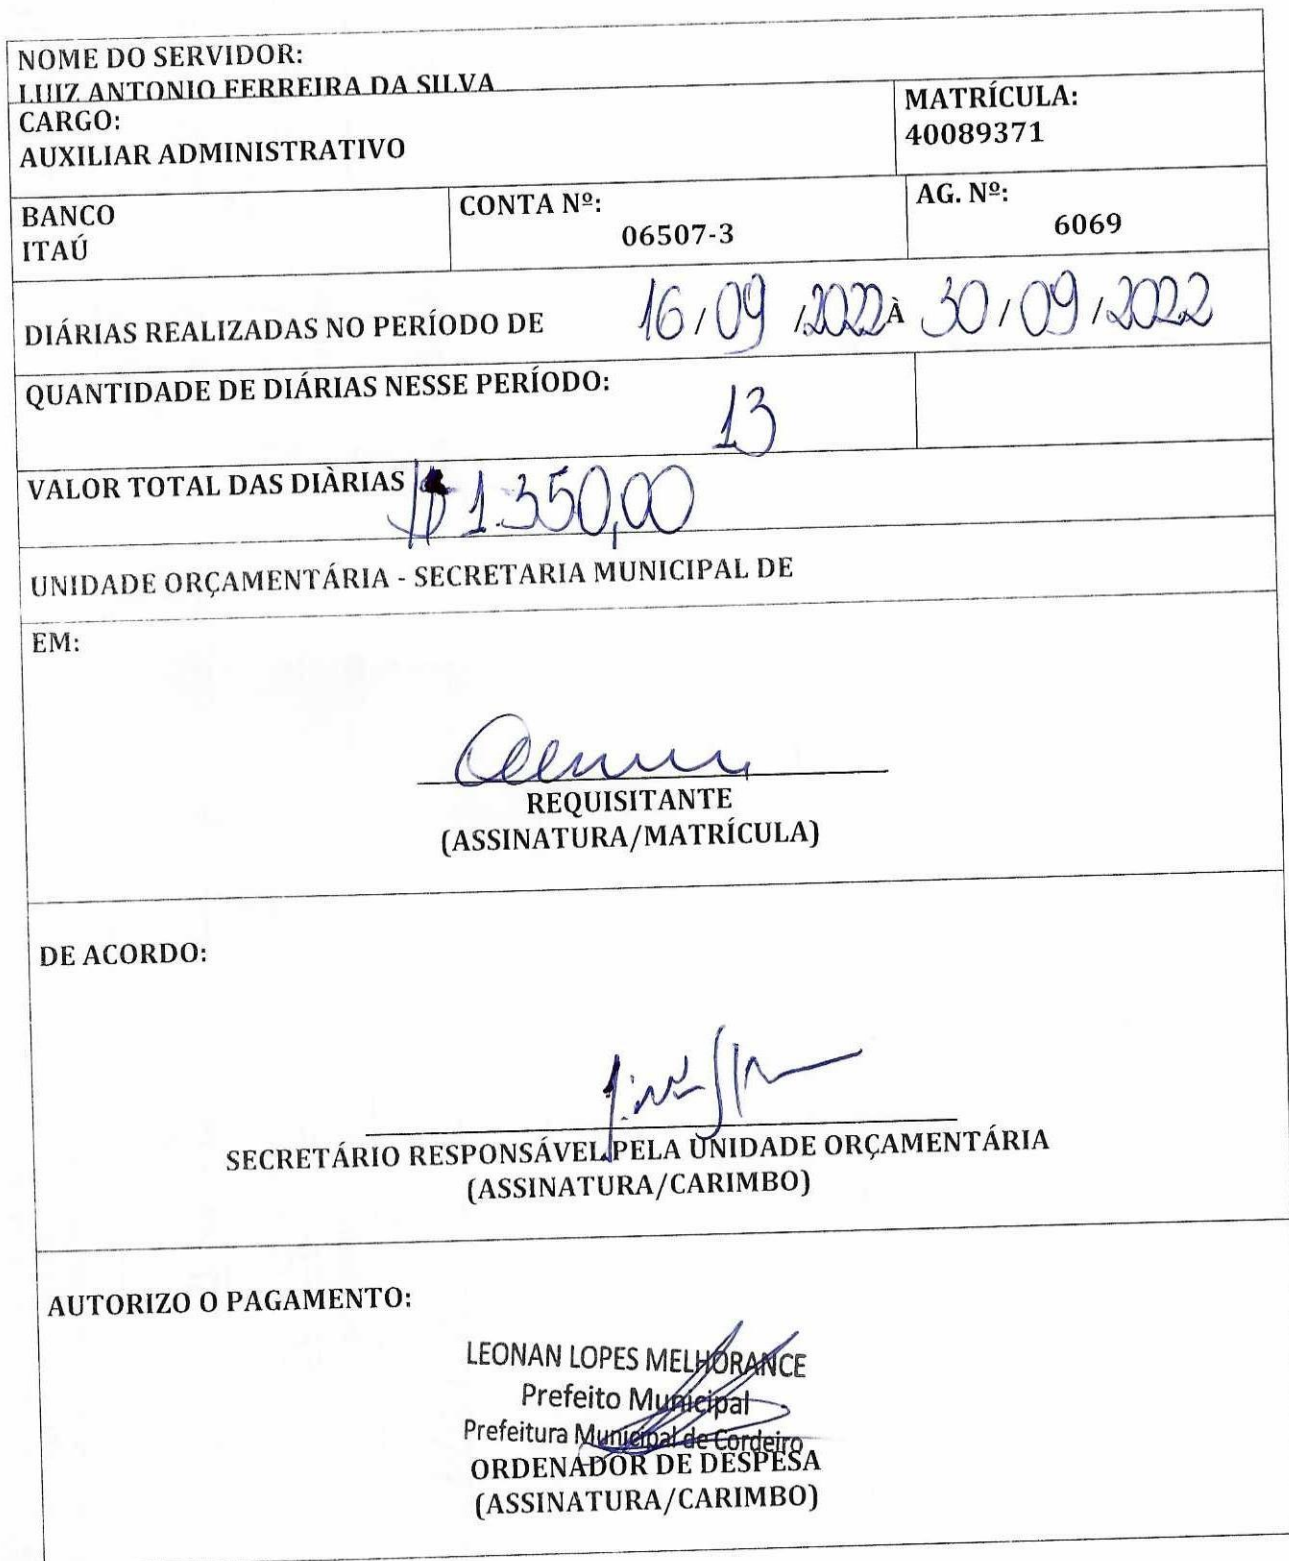 NOME DO SERVIDOR:
LUIZ ANTONIO FERREIRA DA SILVA
CARGO:
AUXILIAR ADMINISTRATIVO
MATRÍCULA:
40089371
BANCO
ITAÚ
CONTA Nº:
06507-3
AG. Nº:
6069
DIÁRIAS REALIZADAS NO PERÍODO DE 16/09/2022 À 30/09/2022
QUANTIDADE DE DIÁRIAS NESSE PERÍODO: 13
VALOR TOTAL DAS DIÀRIAS R$ 1.350,00
UNIDADE ORÇAMENTÁRIA - SECRETARIA MUNICIPAL DE
EM:
REQUISITANTE
(ASSINATURA/MATRÍCULA)
DE ACORDO:
SECRETÁRIO RESPONSÁVEL PELA UNIDADE ORÇAMENTÁRIA
(ASSINATURA/CARIMBO)
AUTORIZO O PAGAMENTO:
LEONAN LOPES MELHORANCE
Prefeito Municipal
Prefeitura Municipal de Cordeiro
ORDENADOR DE DESPESA
(ASSINATURA/CARIMBO)